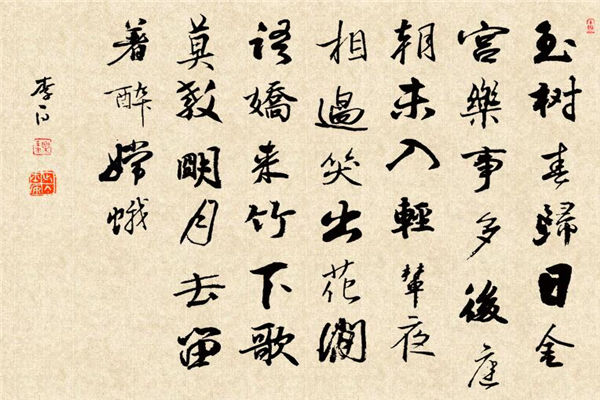 玉树春歸日金
宫樂事多後庭
朝未入輕輦夜
相過笑出花澗
語嬌来竹下歌
莫教明月去留
著醉嫦蛾
李白